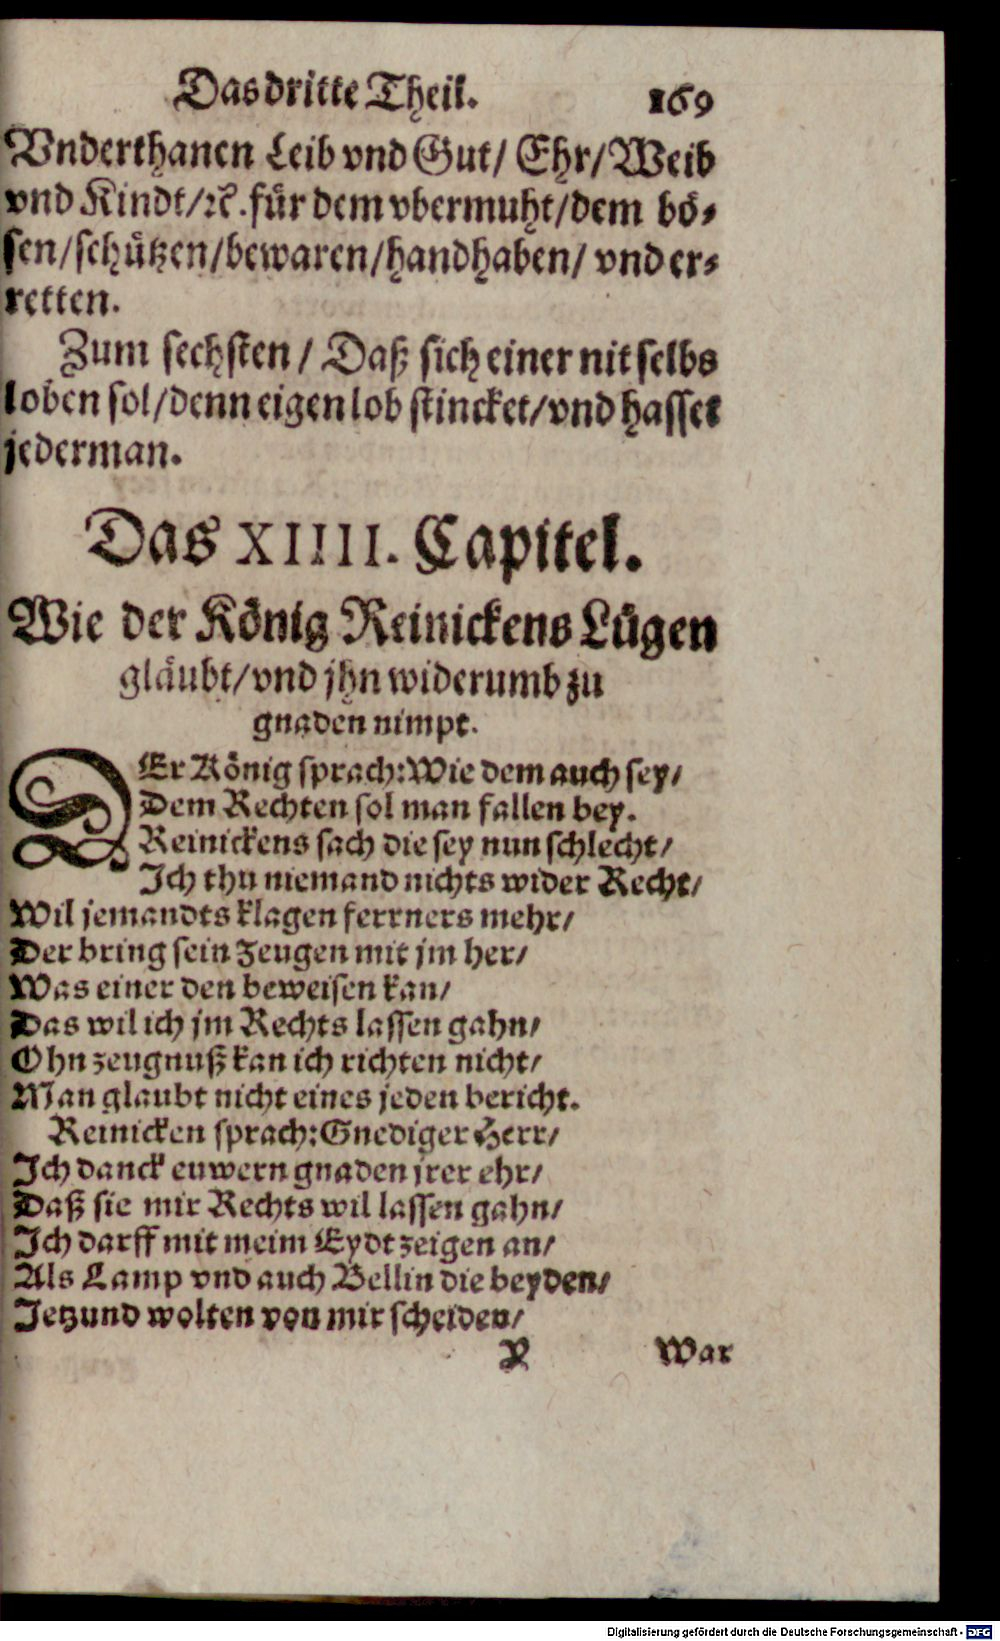 Das dritte Theil. 169
Vnderthanen Leib vnd Gut/ Ehr/ Weib
vnd Kindt/ꝛc̃. fuͤr dem vbermuht/dem boͤ-
sen/schuͤtzen/bewaren/handhaben/ vnd er-
retten.
Zum sechsten/ Daß sich einer nit selbs
loben sol/denn eigen lob stincket/vnd hasset
jederman.
Das XIIII. Capitel.
Wie der Koͤnig Reinickens Luͤgen
glaͤubt/vnd jhn widerumb zu
gnaden nimpt.
DEr Koͤnig sprach: Wie dem auch sey/
Dem Rechten sol man fallen bey.
Reinickens sach die sey nun schlecht/
Ich thu niemand nichts wider Recht/
Wil jemandts klagen ferrners mehr/
Der bring sein Zeugen mit jm her/
Was einer den beweisen kan/
Das wil ich jm Rechts lassen gahn/
Ohn zeugnuß kan ich richten nicht/
Man glaubt nicht eines jeden bericht.
Reinicken sprach: Gnediger Herr/
Ich danck euwern gnaden jrer ehr/
Daß sie mir Rechts wil lassen gahn/
Ich darff mit meim Eydt zeigen an/
Als Lamp vnd auch Bellin die beyden/
Jetzund wolten von mir scheiden/
Y War
Digitalisierung gefördert durch die Deutsche Forschungsgemeinschaft - DFG